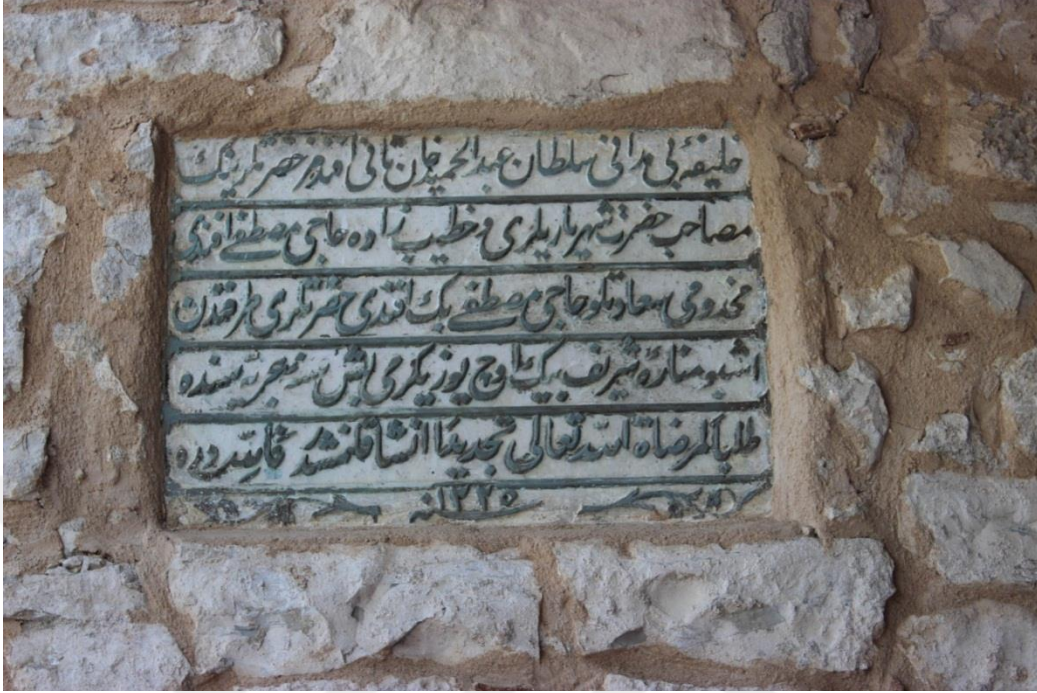 خليفۀ بي مداني سلطان عبد الحميد خان ثاني افندمز حضرتلرينك
مصاحب حضرت شهرياريلري و خطيب زاده حاجي مصطفى افندي
مخدومي سعادتلو حاجي مصطفى بك افندي حضرتلري طرفندن
اشبو منارۀ شريف بيك اوچ يوز يكرمي بش سنه هجريه سنده
طلبا لمرضاة الله تعالى تجديدا انشا قلنمشدر
سنه ١٣٢٥